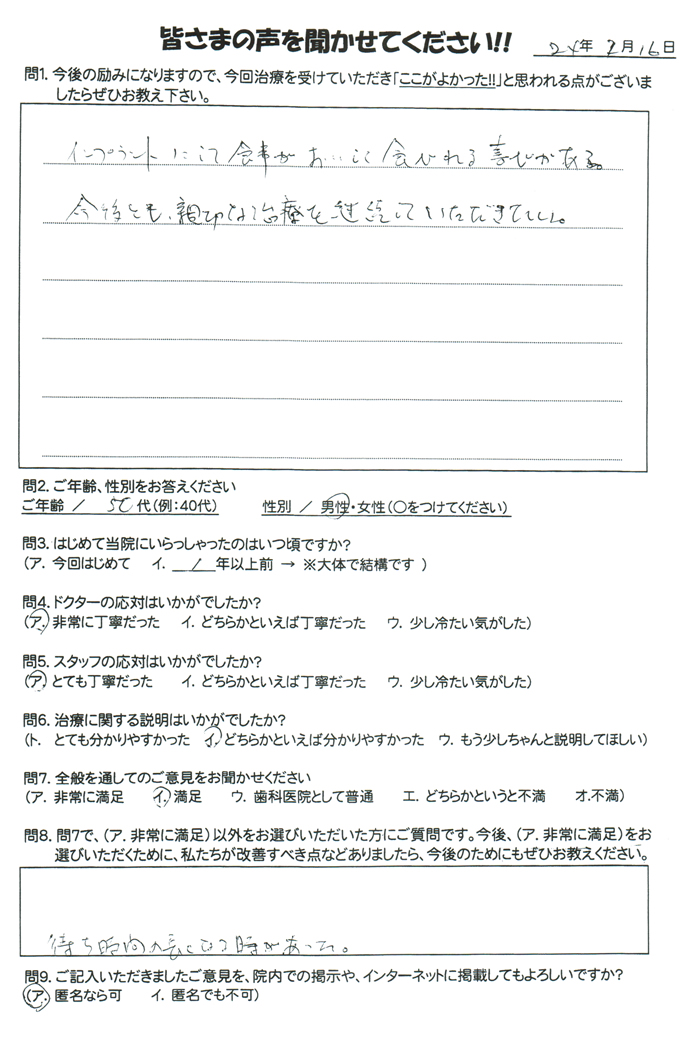 皆さまの声を聞かせてください!! 24年 2月16日
問1. 今後の励みになりますので、今回治療を受けていただき「ここがよかった!!」と思われる点がございま
したらぜひお教え下さい。
インプラントにして食事がおいしく食べれる喜びがある。
今後とも、親切な治療を継続していただきたい。
問2. ご年齢、性別をお答えください
ご年齢 / 50代(例:40代) 性別 / 男性・女性(○をつけてください)
問3. はじめて当院にいらっしゃったのはいつ頃ですか?
(ア. 今回はじめて イ. 1 年以上前 → ※大体で結構です )
問4. ドクターの応対はいかがでしたか?
(ア. 非常に丁寧だった イ. どちらかといえば丁寧だった ウ. 少し冷たい気がした)
問5. スタッフの応対はいかがでしたか?
(ア. とても丁寧だった イ. どちらかといえば丁寧だった ウ. 少し冷たい気がした)
問6. 治療に関する説明はいかがでしたか?
(ト. とても分かりやすかった イ. どちらかといえば分かりやすかった ウ. もう少しちゃんと説明してほしい)
問7. 全般を通してのご意見をお聞かせください
(ア. 非常に満足 イ. 満足 ウ. 歯科医院として普通 エ. どちらかというと不満 オ.不満)
問8. 問7で、(ア. 非常に満足)以外をお選びいただいた方にご質問です。今後、(ア. 非常に満足)をお
選びいただくために、私たちが改善すべき点などありましたら、今後のためにもぜひお教えください。
待ち時間が長くなる時があった。
問9. ご記入いただきましたご意見を、院内での掲示や、インターネットに掲載してもよろしいですか?
(ア. 匿名なら可 イ. 匿名でも不可)